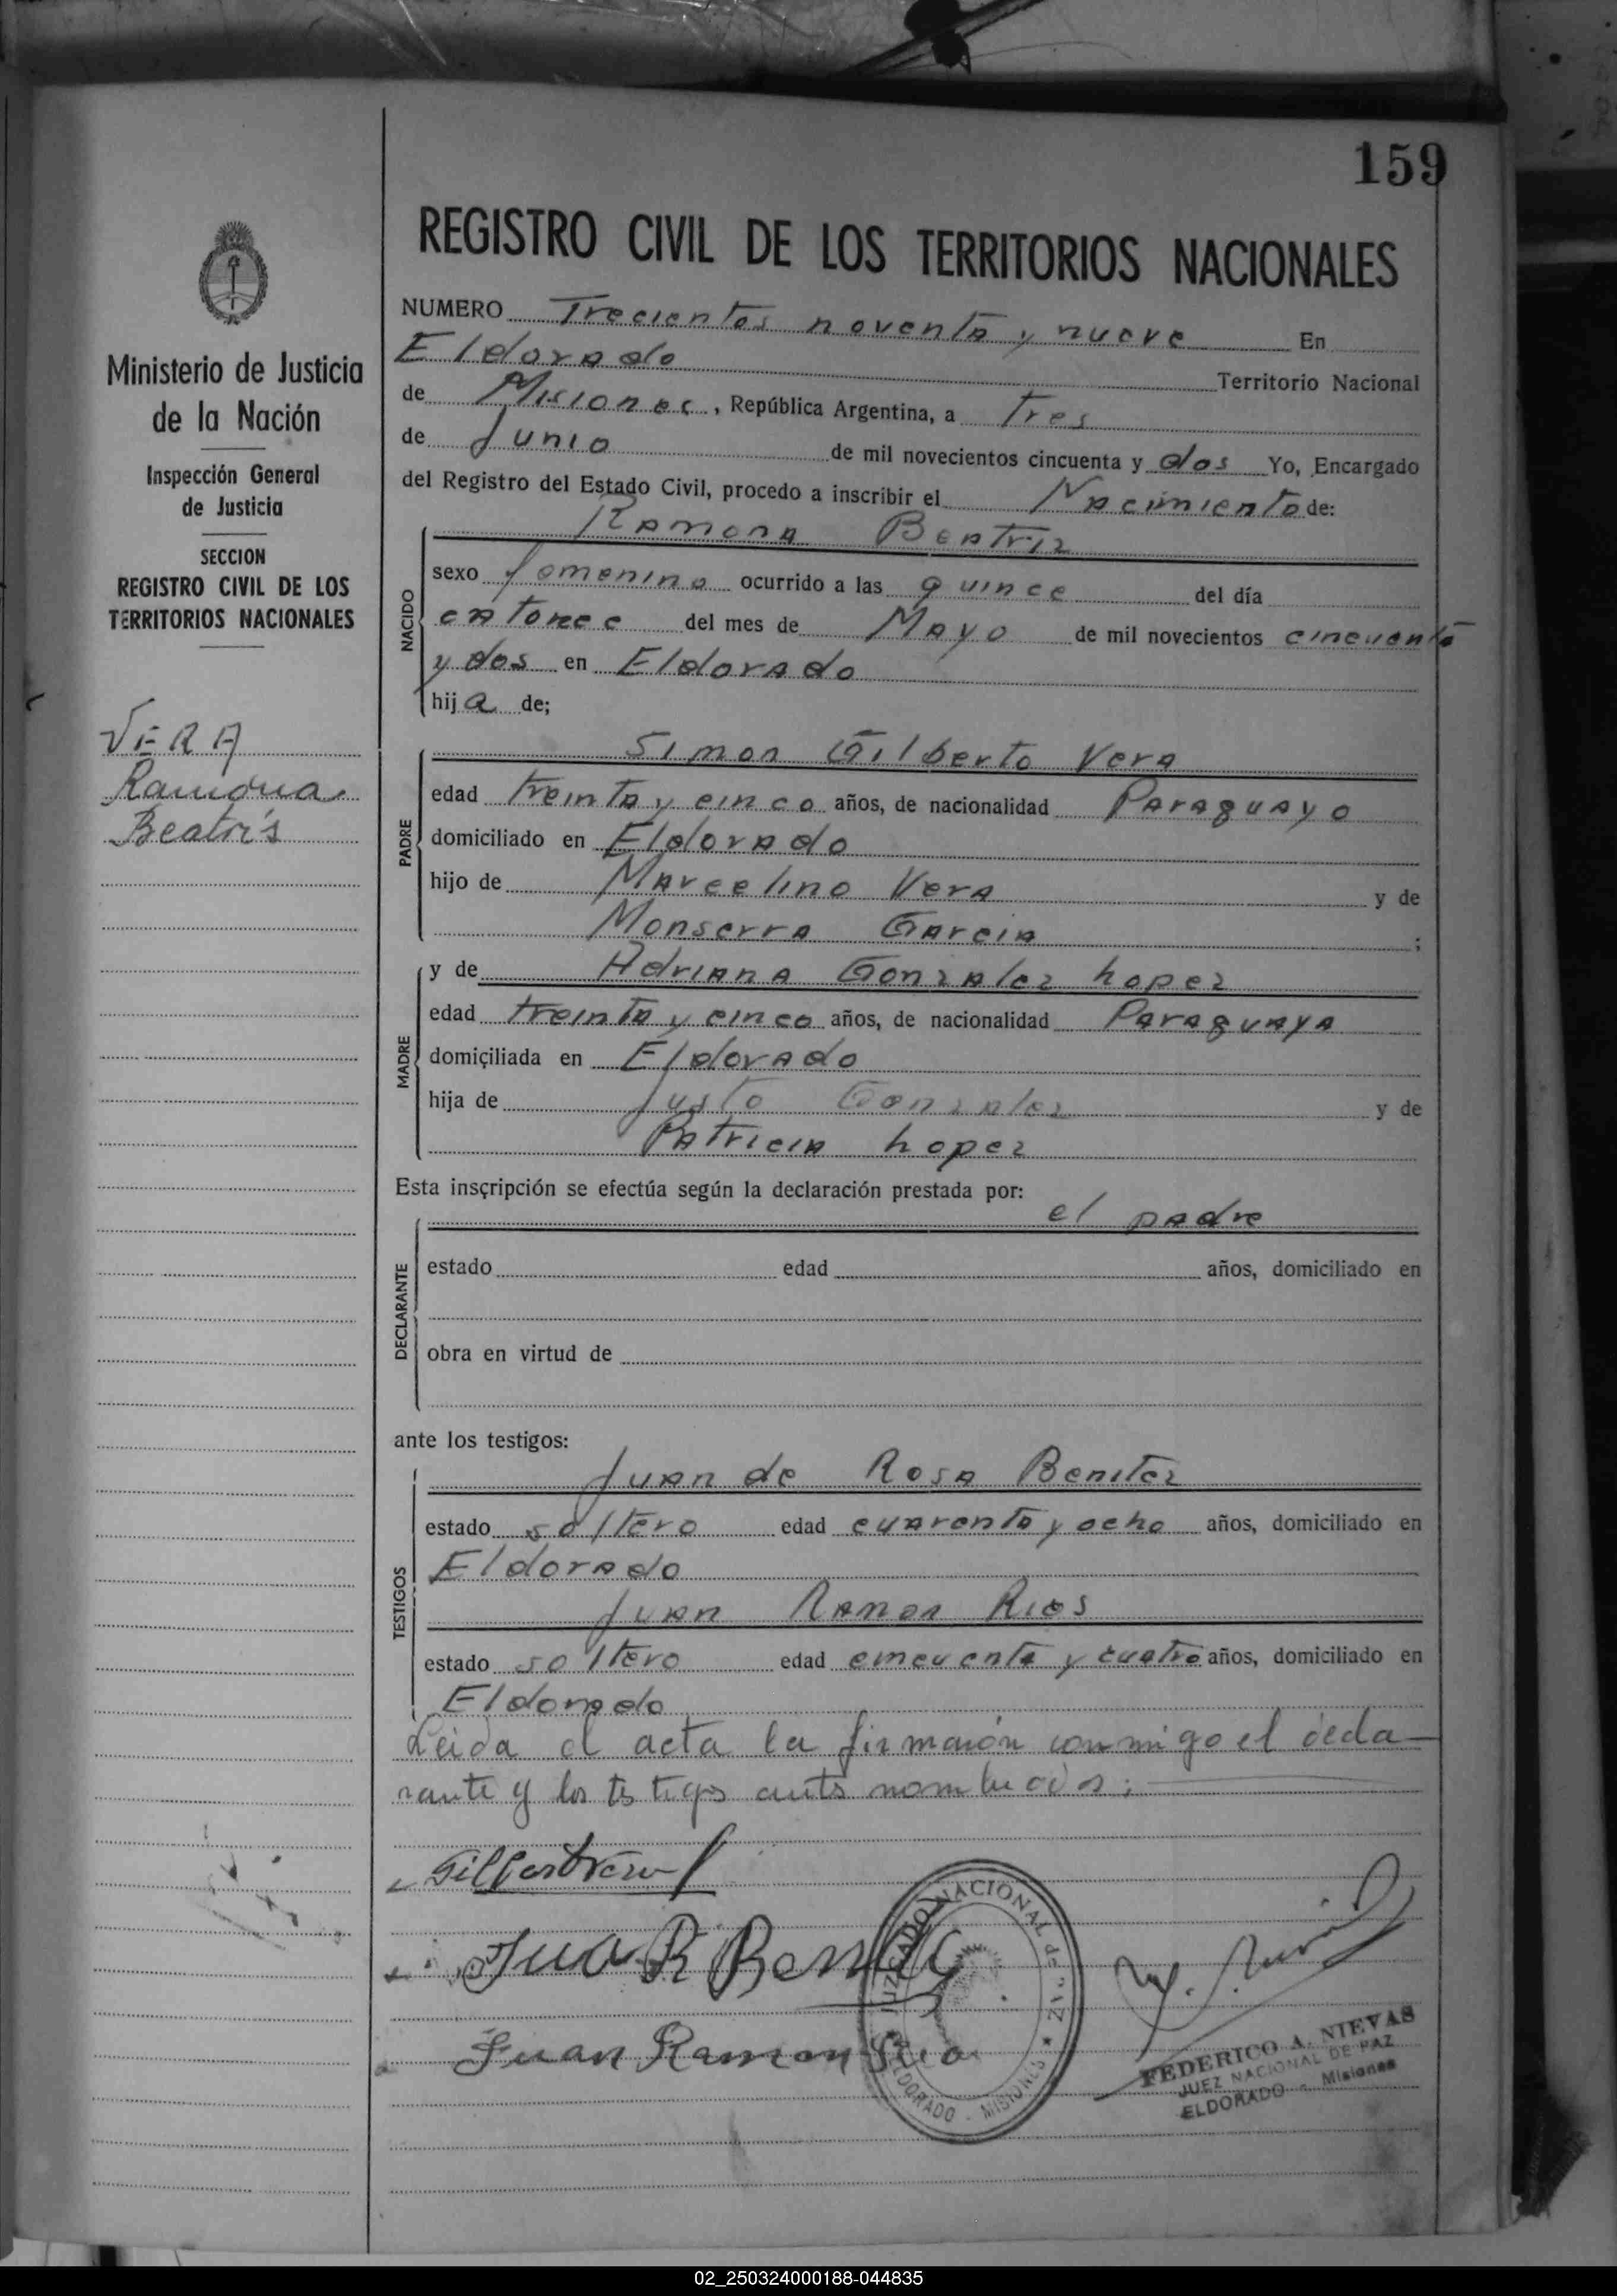 159
REGISTRO CIVIL DE LOS TERRITORIOS NACIONALES
Ministerio de Justicia
de la Nación
Inspección General
de Justicia
SECCION
REGISTRO CIVIL DE LOS
TERRITORIOS NACIONALES
VERA
Ramona
Beatrís
NUMERO Trecientos noventa y nueve En
Eldorado Territorio Nacional
de Misiones, República Argentina, a Tres
de Junio de mil novecientos cincuenta y dos Yo, Encargado
del Registro del Estado Civil, procedo a inscribir el Nacimiento de:
NACIDO
Ramona Beatriz
sexo femenino ocurrido a las quince del día
catorce del mes de Mayo de mil novecientos cincuenta
y dos en Eldorado
hija de;
PADRE
Simon Gilberto Vera
edad treinta y cinco años, de nacionalidad Paraguayo
domiciliado en Eldorado
hijo de Marcelino Vera y de
Monserra Garcia;
MADRE
y de Adriana Gonzalez Lopez
edad treinta y cinco años, de nacionalidad Paraguaya
domiçiliada en Eldorado
hija de Justo Gonzalez y de
Patricia Lopez
Esta insçripción se efectúa según la declaración prestada por:
DECLARANTE
el padre
estado edad años, domiciliado en
obra en virtud de
ante los testigos:
TESTIGOS
Juan de Rosa Benitez
estado soltero edad cuarenta y ocho años, domiciliado en
Eldorado
Juan Ramon Rios
estado soltero edad cincuenta y cuatro años, domiciliado en
Eldorado
Leida el acta la firmarón conmigo el decla-
rante y los testigos antes nombrados;
Gilberto Vera
Juan R Benitez
Juan Ramon Rios
JUZGADO NACIONAL de PAZ
ELDORADO - MISIONES
FEDERICO A. NIEVAS
JUEZ NACIONAL DE PAZ
ELDORADO - Misiones
02_250324000188-044835